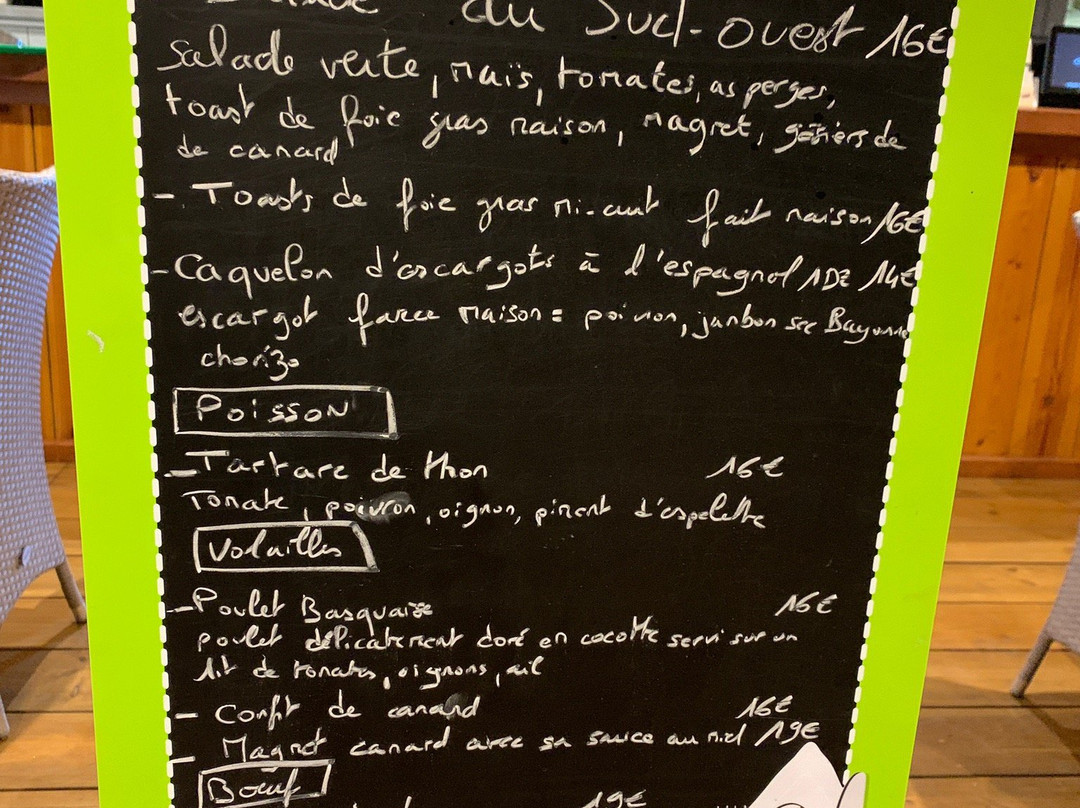 du Sud-ouest 16€
Salade verte, maïs, tomates, asperges,
toast de foie gras maison, magret, gésiers de
de canard
- Toasts de foie gras mi-cuit fait maison 16€
- Caquelon d'escargots à l'espagnol 1DZ 14€
escargot farce maison = poivron, jambon sec Bayonne
chorizo
Poisson
- Tartare de thon 16€
Tomate, poivron, oignon, piment d'espelette
Volailles
- Poulet Basquaise 16€
poulet délicatement doré en cocotte servi sur un
lit de tomates, oignons, ail
- Confit de canard 16€
- Magret canard avec sa sauce au miel 19€
Bœuf
19€